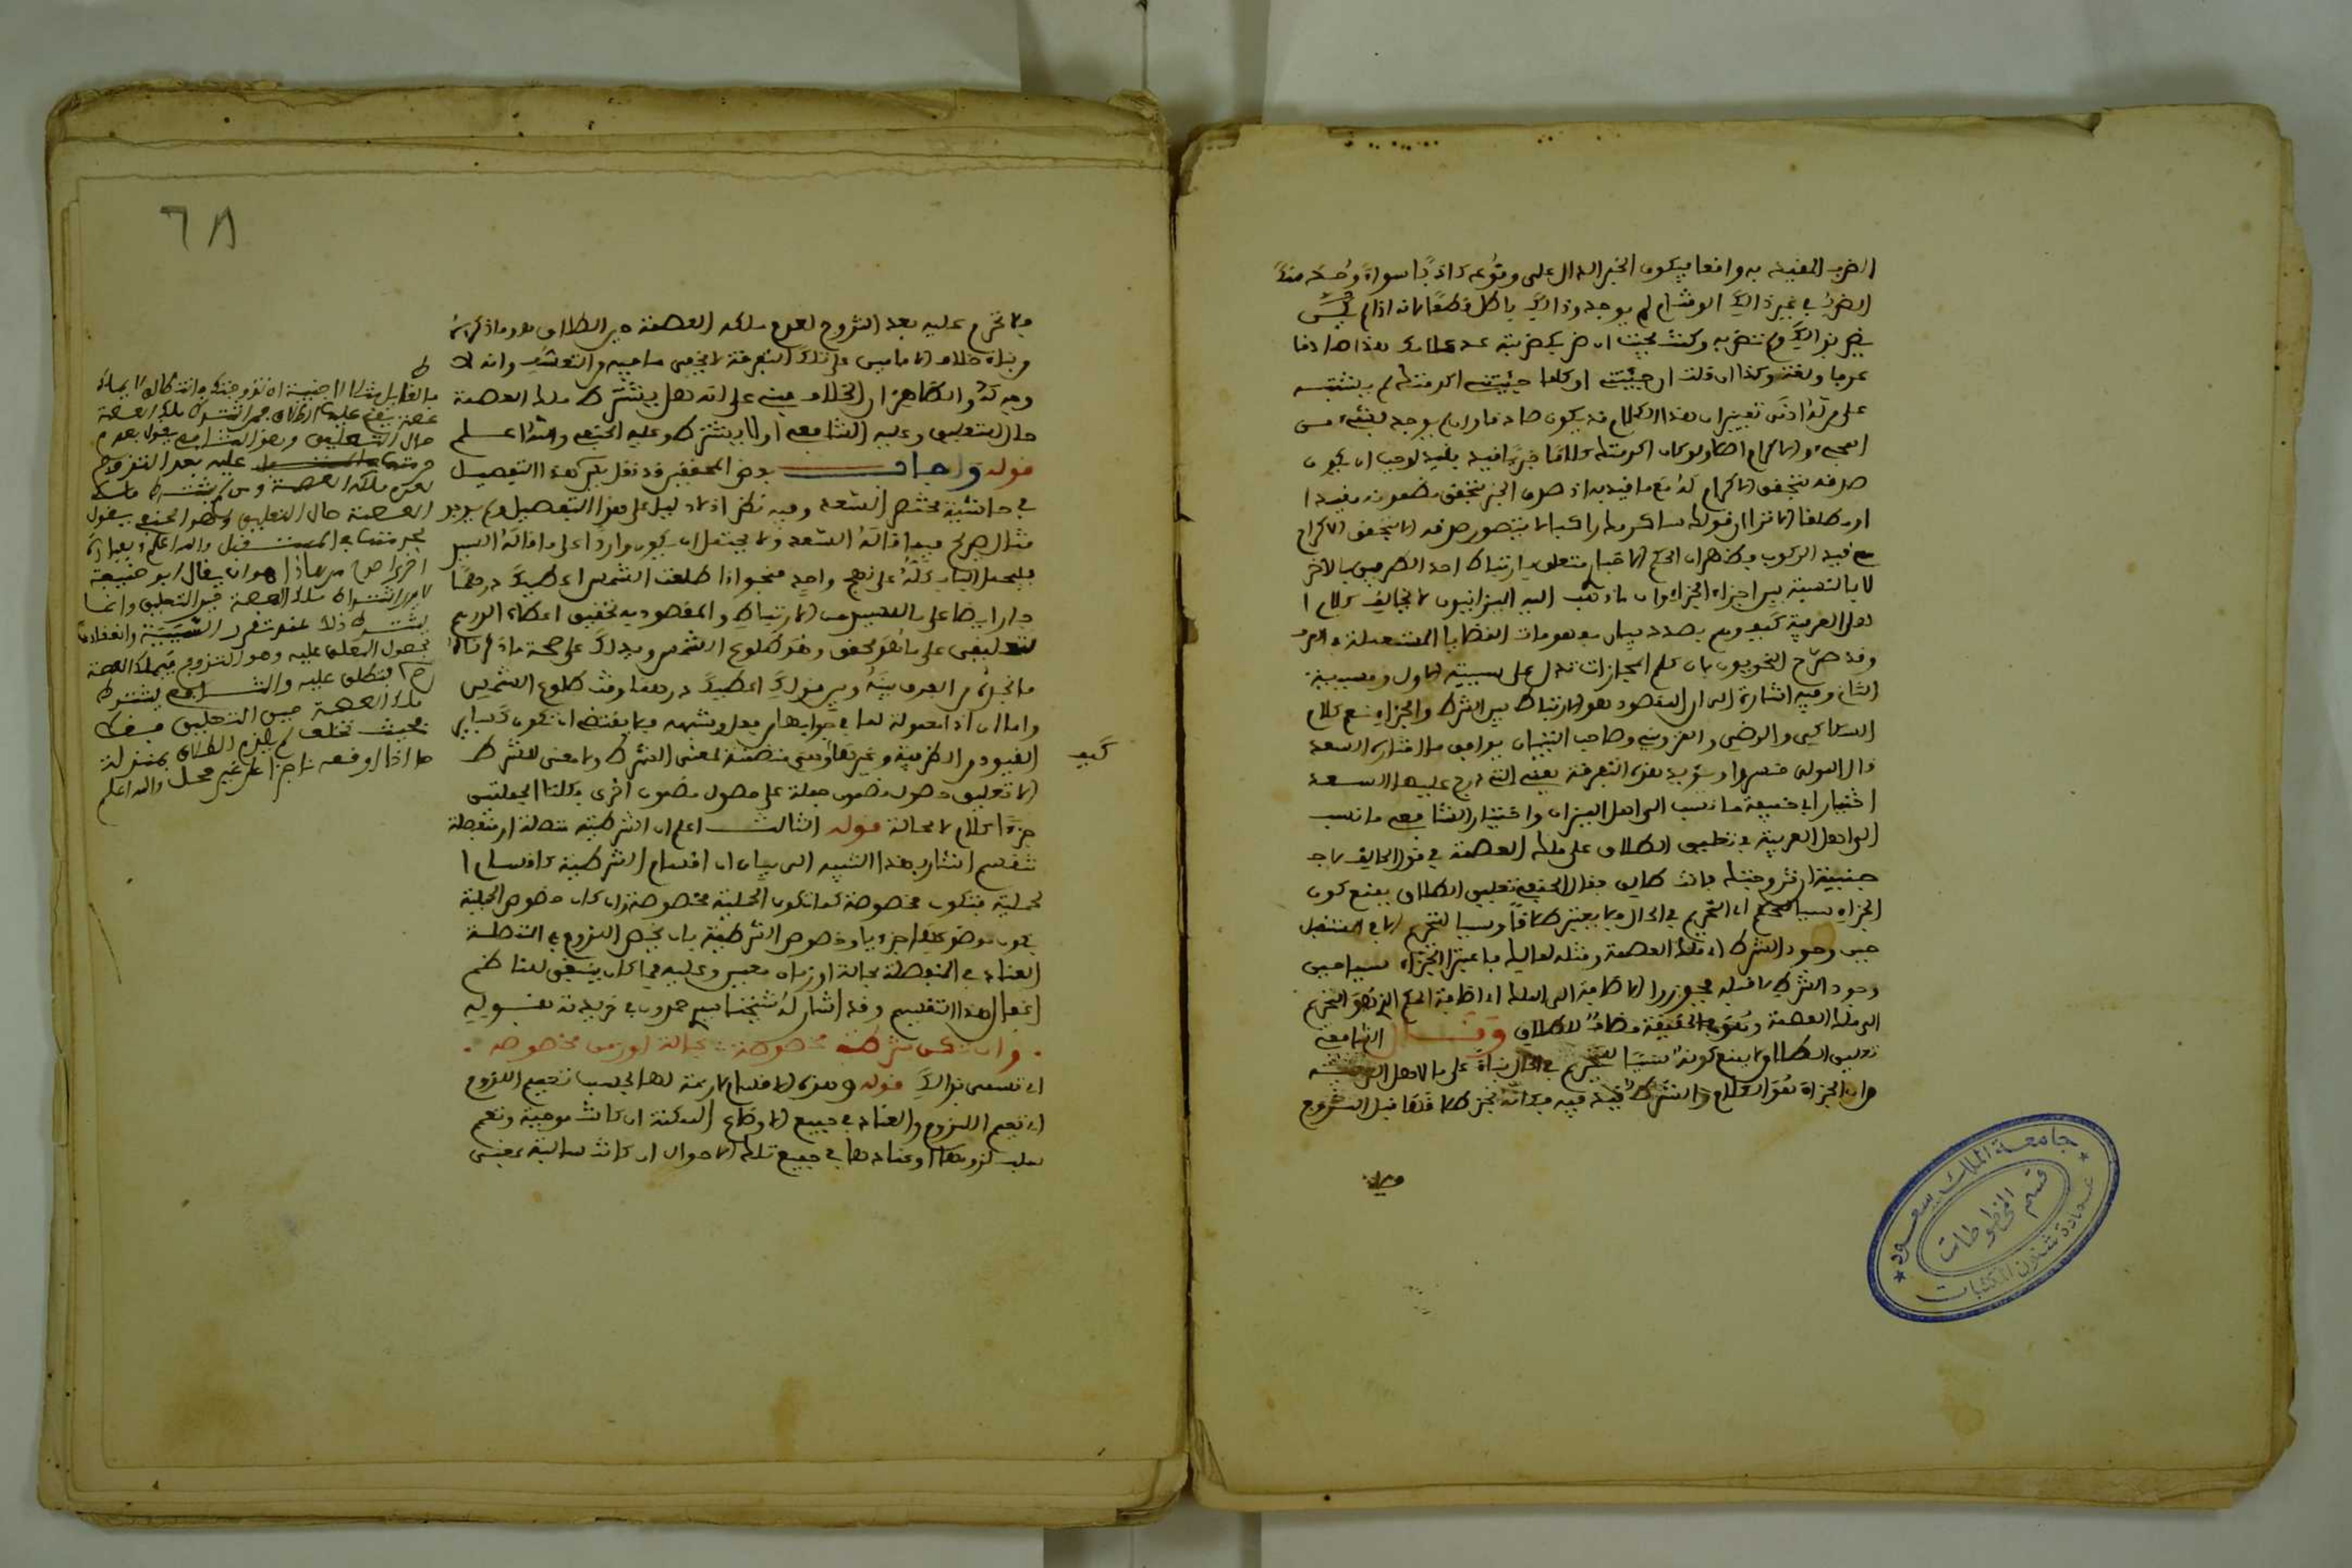 الضرب المقيد به واقعا فيكون الخبر الدال على وقوعه كاذبا سواء وجد منك
الضرب في غير ذالك الوقت ام لم يوجد وذالك باطل قطعا لانه اذا لم
يضربك ولم تضربه وكنت بحيث ان ضربك ضربته عد كلامك هذا صادقا
عرفا ولغة وكذا اذا قلت ان جئتني او كلما جئتني اكرمتك لم يشتبه
على من له ادنى تمييز ان هذا الكلام قد يكون صادقا وان لم يوجد شيء من
المجيء والاكرام اصلا ولو كان اكرمتك كلاما خبريا فيد بقيد لوجب ان يكون
صدقه بتحقق الاكرام له مع ما قيد به اذ صدق الخبر بتحقق مضمونه مقيدا
او مطلقا الا ترا ان قولك ساكرمك راكبا لا يتصور صدقه الا بتحقق الاكرام
مع قيد الركوب فظهر ان الحكم الاخبار متعلق بارتباط احد الطرفين بالاخر
لا بالنسبة بين اجزاء الجزاء وان ما ذهب اليه الميزانيون لا يخالف كلام ا
هل العربية كيف وهم بصدد بيان مفهومات القضايا المستعملة في العرف
وقد صرح النحويون بان كلم المجازات تدل على سببية الاول ومسببية
الثاني وفيه اشارة الى ان المقصود هو الارتباط بين الشرط والجزاء نعم كلام
السكاكي والرضي والقزويني وصاحب التبيان يوافق ما اختاره السعد
قال المولى خسروا ويؤيد هذه التفرقة يعني التي درج عليها السعد
اختيار ابي حنيفة ما نسب الى اهل الميزان واختيار الشافعي ما نسب
الى اهل العربية في تعليق الطلاق على ملك العصمة في قول الحالف لاج
جنبية ان تزوجتك فانت طالق فقال الحنفي تعليق الطلاق يمنع كون
الجزاء سببا للحكم اي التحريم في الحال فلا يعتبر طلاقا وسببا للتحريم الا في المستقبل
حين وجود الشرط اي ملك العصمة ومثله لعاليك فاعتبر الجزاء سببا حين
وجود الشرط لا قبله فجوزوا الاضافة الى الملك اي اضافة الحكم الذي هو التحريم
الى ملك العصمة وهو في الحقيقة مضاف للطلاق وقال الشافعي
تعليق الطلاق لا يمنع كونه سببا للتحريم في الحال بناء على ما لاهل العربية
من ان الجزاء هو الكلام والشرط قيد فيه فكانه نجز طلاقا قبل التزوج
فلا
٦٨
فلا تحرم عليه بعد التزوج لعدم ملكه العصمة حين الطلاق هو ما ذكره
وبناء خلاف الامامين على تلك التفرقة لا يخفى ما فيه من التعسف وانه لا
وجه له والظاهر ان الخلاف مبني على انه هل يشترط ملك العصمة
حال التعليق وعليه الشافعي او لا يشترط وعليه الحنفي والله اعلم
قوله واجاب بعض المحققين قد نقل يس هذا التفصيل
في حاشية مختصر السعد وفيه نظر اذ لا دليل على هذا التفصيل ولم يوجد
مثال صريح فيما قاله السعد ولا يحتمل ان يكون واردا على ما قاله السيد
فليحمل الباب كله على نهج واحد فنحو اذا طلعت الشمس اعطيك درهما
جار ايضا على ما للسيد من الارتباط والمقصود به تحقيق اعطاء الدرهم
لتعليقه على ما هو محقق وهو طلوع الشمس ويدلك على صحة ما ذكرناه
ما تجده من الفرق بينه وبين قولك اعطيك درهما وقت طلوع الشمس
واما ان اذا معمولة لما في جوابها من فعل وشبهه فلا يقتضي ان تكون كسائر
القيود من الظرفية وغيرها وهي متضمنة لمعنى الشرط ولا معنى للشرط
الا تعليق حصول مضمون جملة على حصول مضمون اخرى فكلتا الجملتين
جزء الكلام لا محالة قوله الثالث اعلم ان الشرطية متصلة او منفصلة
تنقسم اشار بهذا التنبيه الى بيان ان اقسام الشرطية كاقسام ا
لحملية فتكون مخصوصة كما تكون الحملية مخصوصة وان كان خصوص الحملية
بكون موضوعها جزءيا وخصوص الشرطية بان يخص اللزوم في المتصلة
العناد في المنفصلة بحالة او زمان معين وعليه فما كان ينبغي للناظم
اغفال هذا التقسيم وقد اشار له شيخنا سيدي حمدون في خريدته بقوله
وان تكن شرطية مخصوصة : بحالة او زمن مخصوصه
اي تسمى بذالك قوله وهذه الاقسام الاربعة لها بحسب تعميم اللزوم
اي تعميم اللزوم والعناد في جميع الاوضاع الممكنة ان كانت موجبة وتعم
سلب لزومها او عنادها في جميع تلك الاحوال ان كانت سالبة بمعنى
كيف
فالقايل مثلا لاجنبية ان تزوجتك فانت طالق
حال التعليق وهو الشافعي يقول بعدم
عليه بعد التزوج
لعدم ملكه العصمة ومن لم يشترط ملك
العصمة حال التعليق وهو الحنفي يقول
بحرمتها في المستقبل والله اعلم
هو ان يقال ابو حنيفة
لا يرى اشتراط ملك العصمة حين التعليق وانما
يشترط ذلك عند تقرر السببية وانعقادها
بحصول المعلق عليه وهو التزوج فيملك العصمة
فتطلق عليه والشافعي يشترط
ملك العصمة حين التعليق
فحيث تخلف لم يلزم الطلاق بمنزلة
ما اذا اوقعه ناجزا على غير محل والله اعلم
جامعة الملك سعود
قسم المخطوطات
عمادة شئون المكتبات